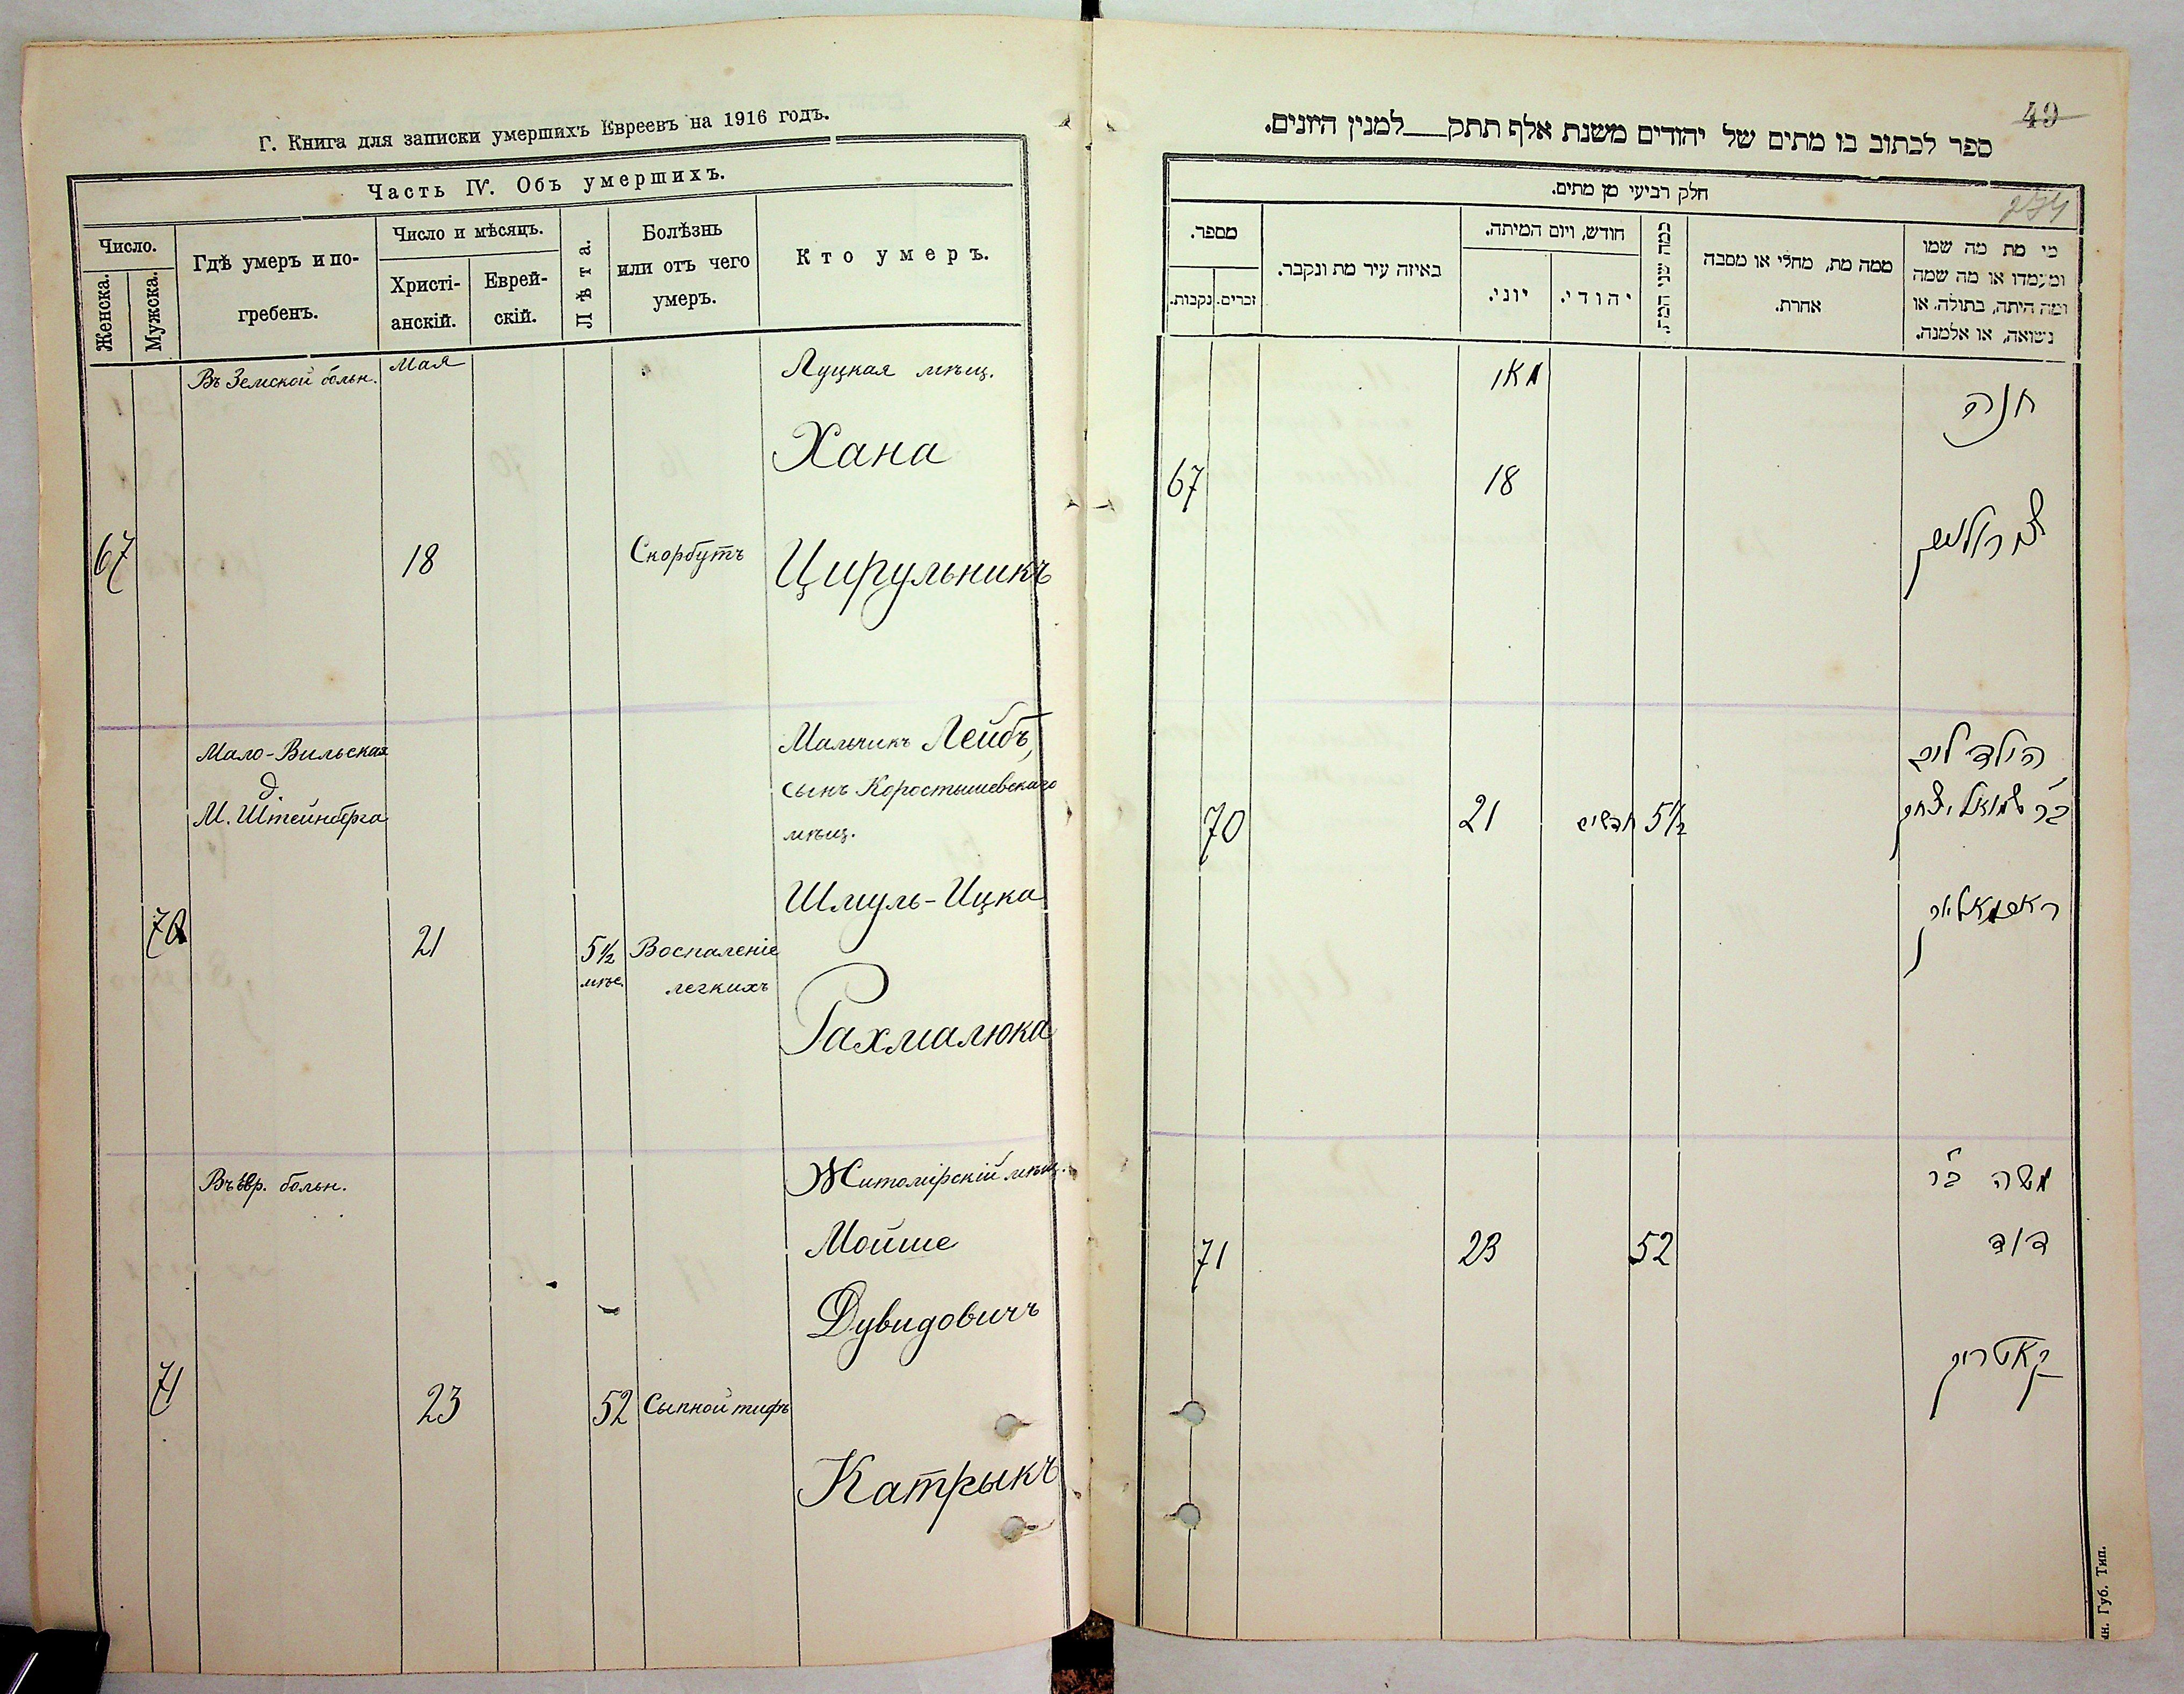 Г. Книга для записки умершихъ Евреевъ на 1916 годъ.
Часть IV. Объ умершихъ.
Число.
Женска.
Мужска.
Гдѣ умеръ и по-
гребенъ.
Число и мѣсяцъ.
Христі-
анскій.
Еврей-
скій.
Лѣта.
Болѣзнь
или отъ чего
умеръ.
Кто умеръ.
Въ Земской больн.
Мая
Луцкая мѣщ.
Хана
67
18
Скорбутъ
Цирульникъ
Мало-Вильская
д.
М. Штейнберга
Мальчикъ Лейбъ,
сынъ Коростышевскаго
мѣщ.
Шмуль-Ицка
70
21
5½
мѣс.
Воспаленіе
легкихъ
Рахмалюка
Въ Евр. больн.
Житомірскій мѣщ.
Мойше
Дувидовичъ
71
23
52
Сыпной тифъ
Катрыкъ
49
274
ספר לכתוב בו מתים של יהודים משנת אלף תתק למנין היונים.
חלק רביעי מן מתים.
מספר.
נקבות.
זכרים.
באיזה עיר מת ונקבר.
חודש, ויום המיתה.
יוני.
יהודי.
כמה שני המת.
ממה מת, מחלי או מסבה
אחרת.
מי מת מה שמו
ומעמדו או מה שמה
ומה היתה, בתולה. או
נשואה, או אלמנה.
מאי
חנה
67
18
הילד ליב
ב״ר שמואל יצחק
70
21
חדשים
5½
ראחמאליוק
משה ב״ר
דוד
71
23
52
קאטריק
ын. Губ. Тип.